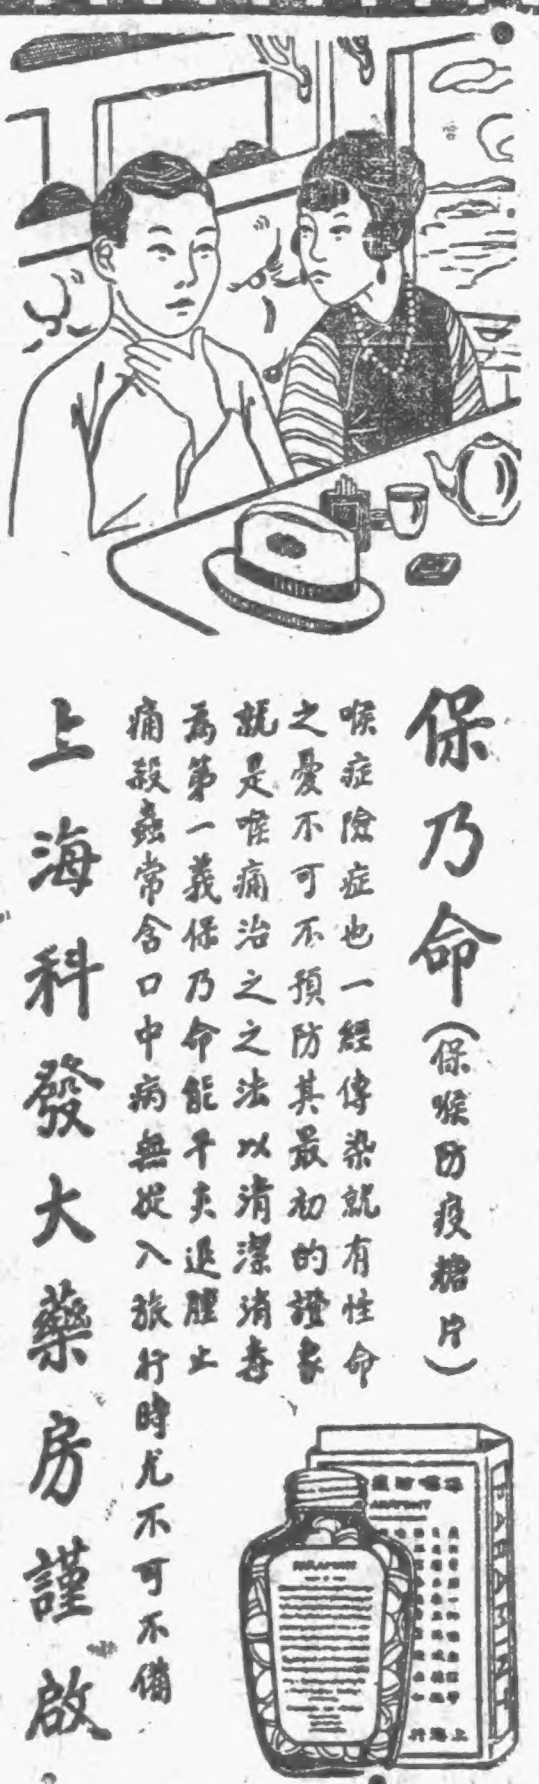 保乃命(保喉防疫糖片)
喉症險症也一經傳染就有性命
之憂不可不預防其最初的證象
就是喉痛治之之法以清潔消毒
為第一義保乃命能平炎退腫止
痛殺蟲常含口中病無從入旅行時尤不可不備
上海科發大藥房謹啟
PARAMINT